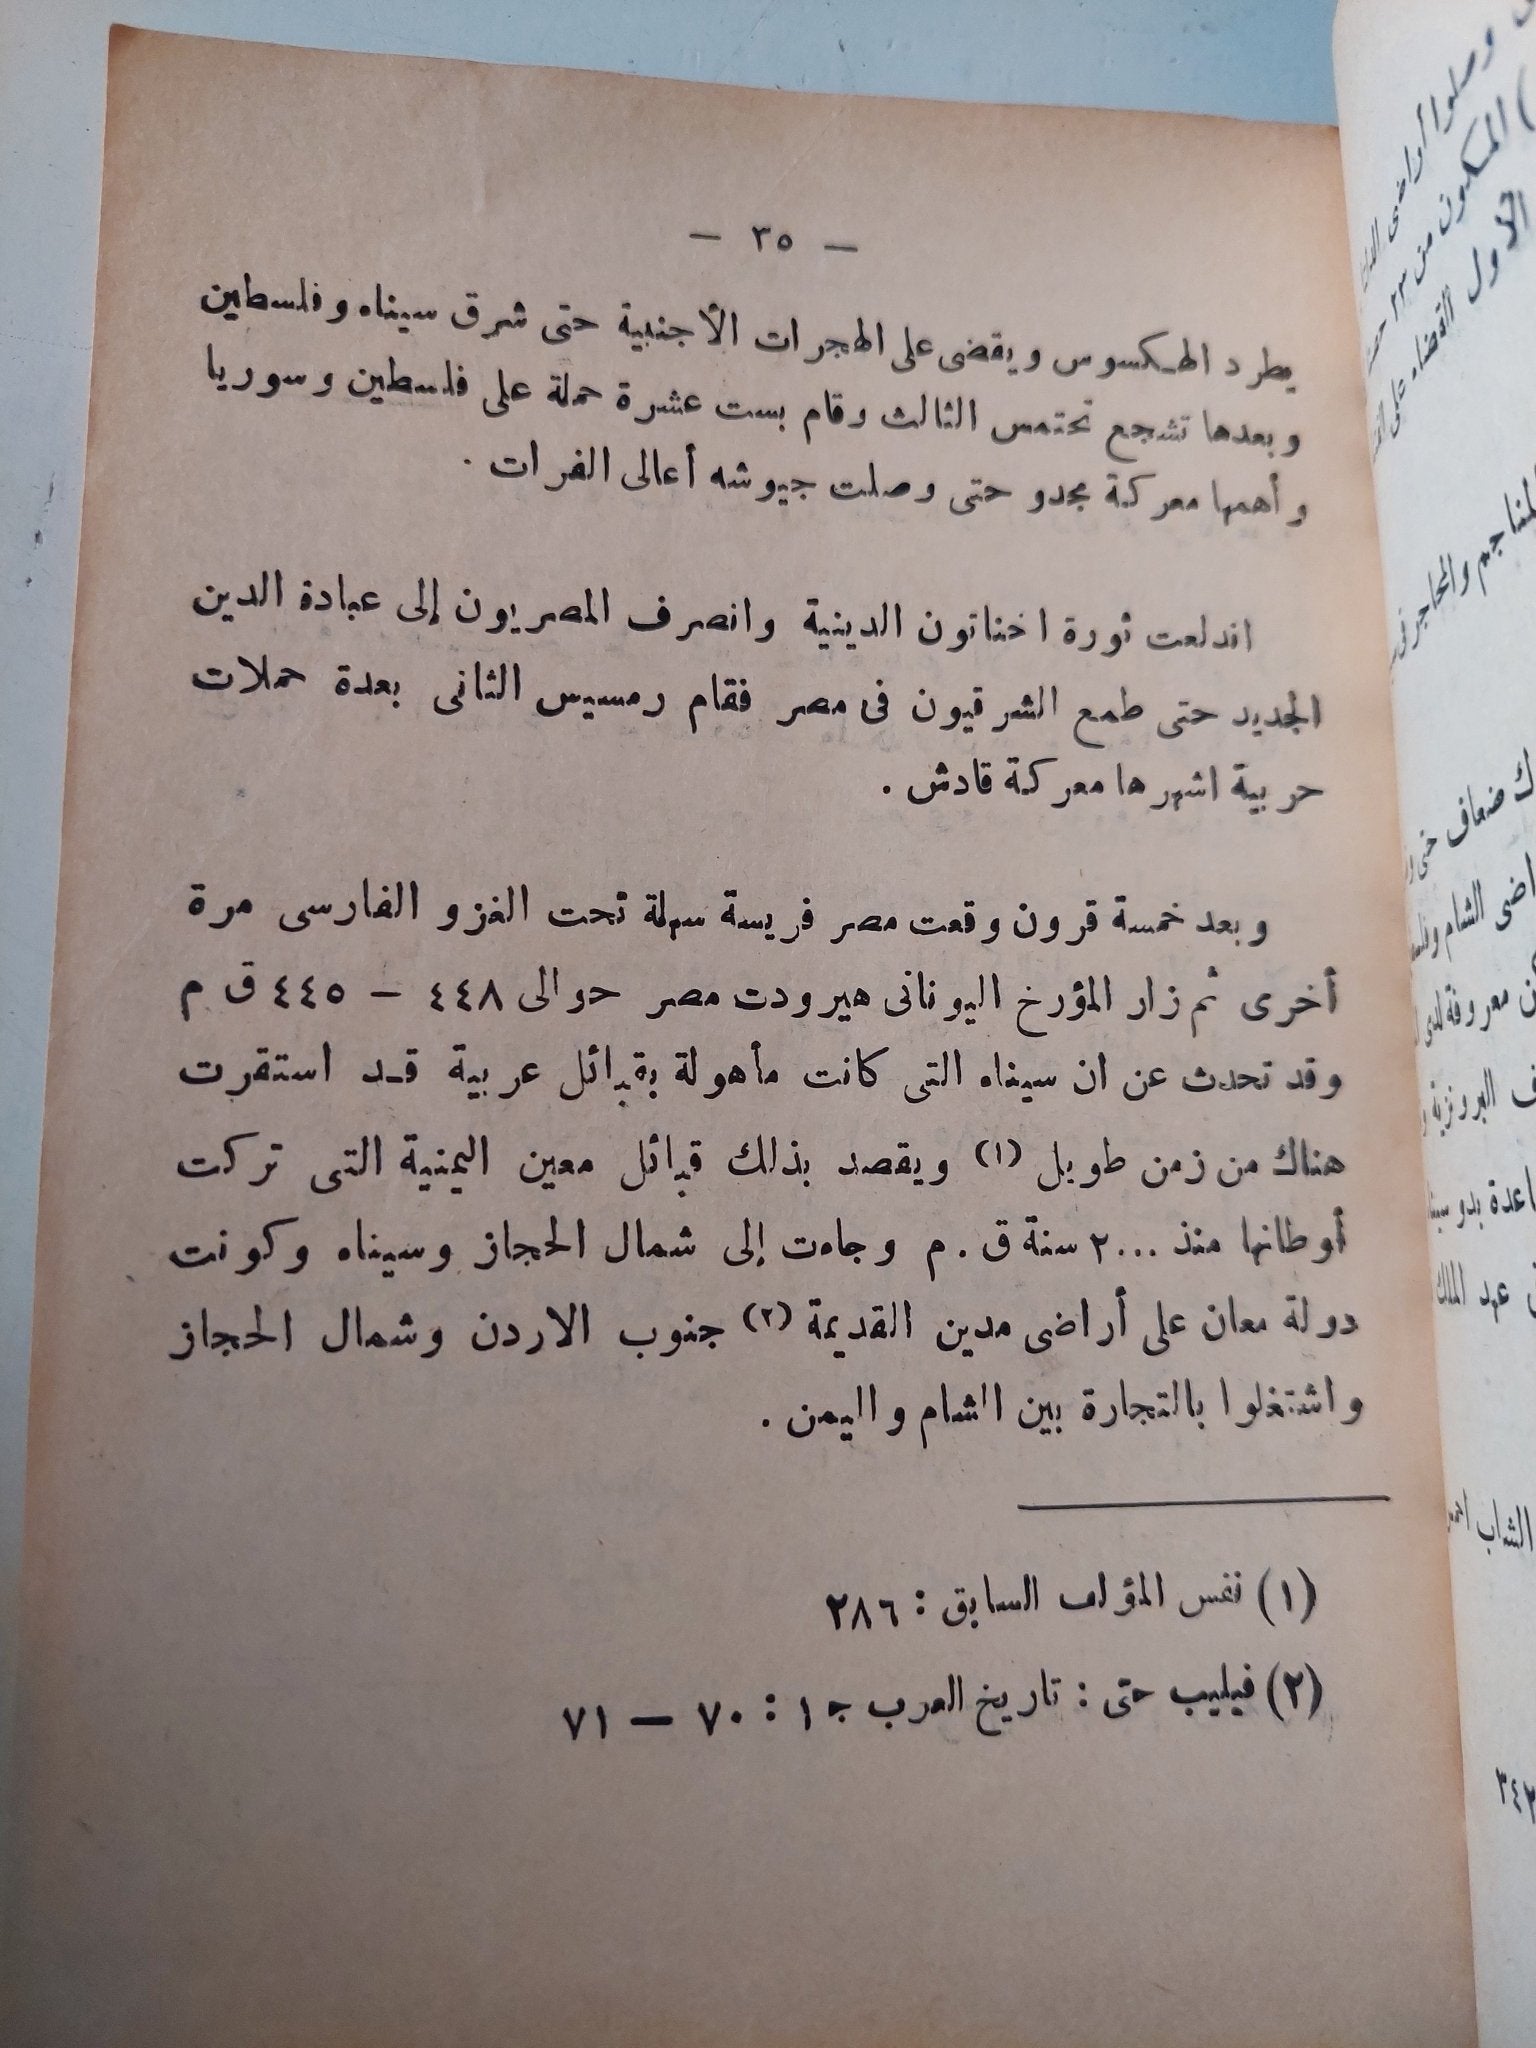 — ٣٥ —
يطرد الهكسوس ويقضى على الهجرات الأجنبية حتى شرق سيناء وفلسطين
وبعدها تشجع تحتمس الثالث وقام بست عشرة حملة على فلسطين وسوريا
وأهمها معركة مجدو حتى وصلت جيوشه أعالى الفرات .
اندلعت ثورة اخناتون الدينية وانصرف المصريون إلى عبادة الدين
الجديد حتى طمع الشرقيون فى مصر فقام رمسيس الثانى بعدة حملات
حربية اشهرها معركة قادش .
وبعد خمسة قرون وقعت مصر فريسة سهلة تحت الغزو الفارسى مرة
أخرى ثم زار المؤرخ اليونانى هيرودت مصر حوالى ٤٤٨ – ٤٤٥ ق م
وقد تحدث عن ان سيناء التى كانت مأهولة بقبائل عربية قد استقرت
هناك من زمن طويل (١) ويقصد بذلك قبائل معين اليمنية التى تركت
أوطانها منذ ٢٠٠٠ سنة ق . م وجاءت إلى شمال الحجاز وسيناء وكونت
دولة معان على أراضى مدين القديمة (٢) جنوب الاردن وشمال الحجاز
واشتغلوا بالتجارة بين الشام واليمن .
(١) نفس المؤلف السابق : ٢٨٦
(٢) فيليب حتى : تاريخ العرب ج ١ : ٧٠ – ٧١
وصلوا أراضى
المكون من ٢٣
الأول القضاء على
المناجم والمحاجر فى
ضعاف حتى
الشام
معروفة لدى
البرونزية
بدو
عهد الملك
الشاب
٣٤٢